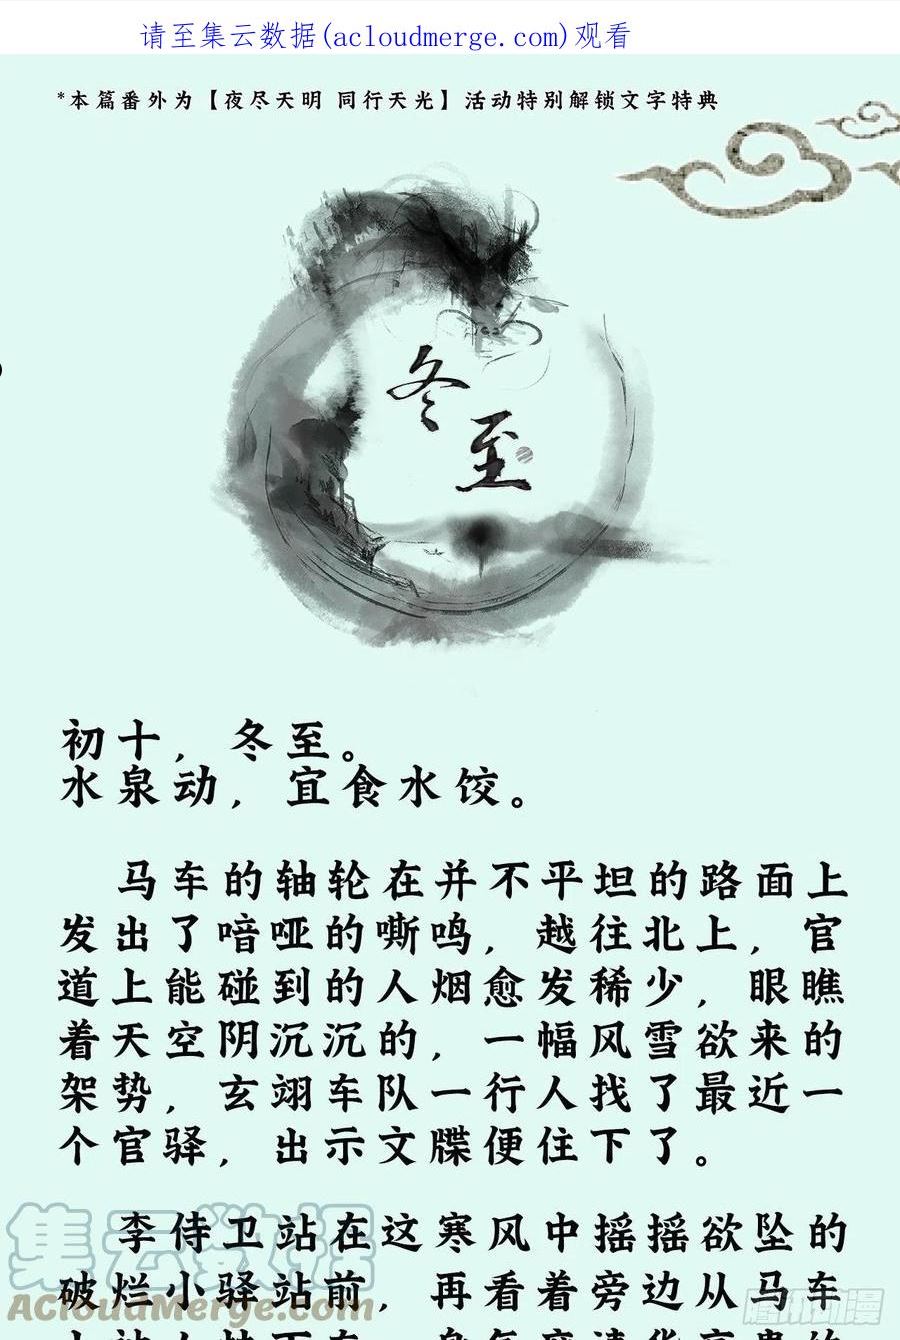 请至集云数据(acloudmerge.com)观看
*本篇番外为【夜尽天明 同行天光】活动特别解锁文字特典
冬至
初十，冬至。
水泉动，宜食水饺。
马车的轴轮在并不平坦的路面上
发出了喑哑的嘶鸣，越往北上，官
道上能碰到的人烟愈发稀少，眼瞧
着天空阴沉沉的，一幅风雪欲来的
架势，玄翊车队一行人找了最近一
个官驿，出示文牒便住下了。
李侍卫站在这寒风中摇摇欲坠的
破烂小驿站前，再看着旁边从马车
集云数据
AcloudMerge.com